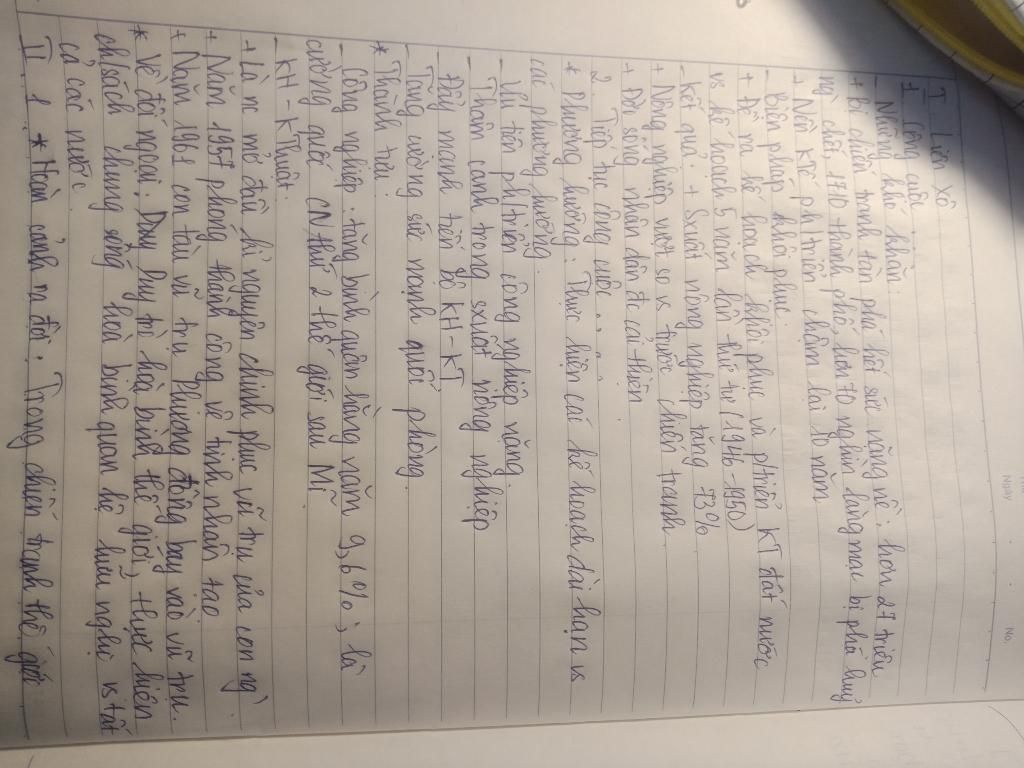 NGÀY
No.
I. Liên Xô
1. Công cuộc
- Những khó khăn.
+ Bị chiến tranh tàn phá hết sức nặng nề: hơn 27 triệu
ng` chết 1710 thành phố, hơn 70 nghìn làng mạc bị phá huỷ
+ Nền KTế ph/triển chậm lại 10 năm
- Biện pháp khôi phục.
+ Đề ra kế hoạch khôi phục và ptriển KT đất nước
vs kế hoạch 5 năm lần thứ tư (1946-1950)
- Kết quả: + Sxuất công nghiệp tăng 73%
+ Nông nghiệp vượt so vs trước chiến tranh
+ Đời sống nhân dân đc cải thiện
2. Tiếp tục công cuộc ...
* Phương hướng: Thực hiện các kế hoạch dài hạn vs
các phương hướng.
- Ưu tiên ph/triển công nghiệp nặng.
- Thâm canh trong sxuất nông nghiệp
- Đẩy mạnh tiến bộ KH-KT
- Tăng cường sức mạnh quốc phòng.
* Thành tựu
- Công nghiệp: tăng bình quân hằng năm 9,6%, là
cường quốc CN thứ 2 thế giới sau Mĩ
- KH-KThuật.
+ Là nc mở đầu kỉ nguyên chinh phục vũ trụ của con ng`
+ Năm 1957 phóng thành công vệ tinh nhân tạo
+ Năm 1961 con tàu vũ trụ Phương Đông bay vào vũ trụ.
* Về đối ngoại: Duy trì hòa bình thế giới, thực hiện
ch/sách chung sống hoà bình quan hệ hữu nghị vs tất
cả các nước
II 1 * Hoàn cảnh ra đời: Trong chiến tranh thế giới